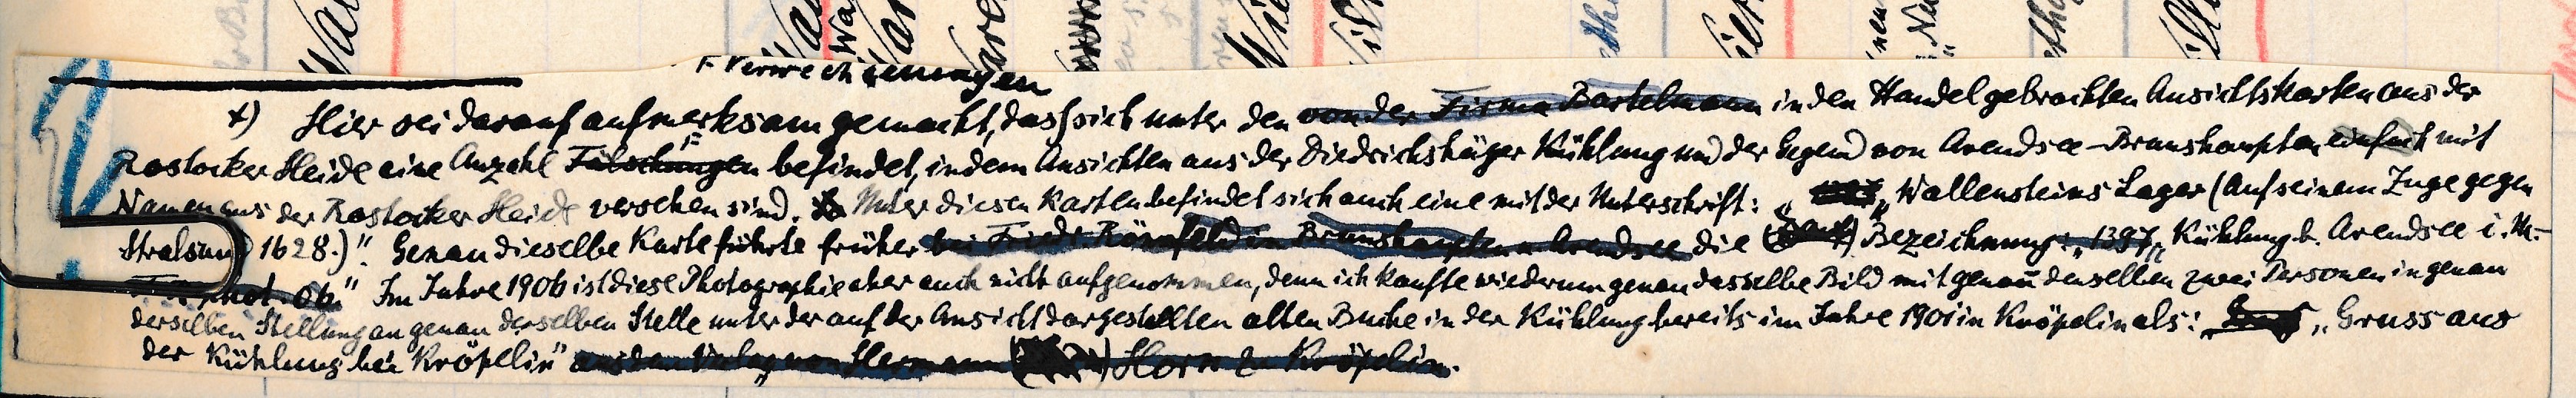 F Verwechselungen
x) Hier sei darauf aufmerksam gemacht, dass sich unter den von der Firma Bartelmann in den Handel gebrachten Ansichtskarten aus der
Rostocker Heide eine Anzahl Fälschungen befindet, indem Ansichten aus der Diedrichshäger Kühlung und der Gegend von Arendsee-Brunshaupten einfach mit
Namen aus der Rostocker Heide versehen sind. Unter diesen Karten befindet sich auch eine mit der Unterschrift: „Wallensteins Lager (Auf seinem Zuge gegen
Stralsund 1628.)". Genau dieselbe Karte führte früher bei Friedr. Römfeld in Brunshaupten u Arendsee die Bezeichnung: „1397„ Kühlung b. Arendsee i. M.-
phot. 06." Im Jahre 1906 ist diese Photographie aber auch nicht aufgenommen, denn ich kaufte wiederum genau dasselbe Bild mit genau denselben zwei Personen in genau
derselben Stellung an genau derselben Stelle unter der auf der Ansicht dargestellten alten Buche in der Kühlung bereits im Jahre 1901 in Kröpelin als: „Gruss aus
der Kühlung bei Kröpelin" aus dem Verlag von Hermann Horn zu Kröpelin.